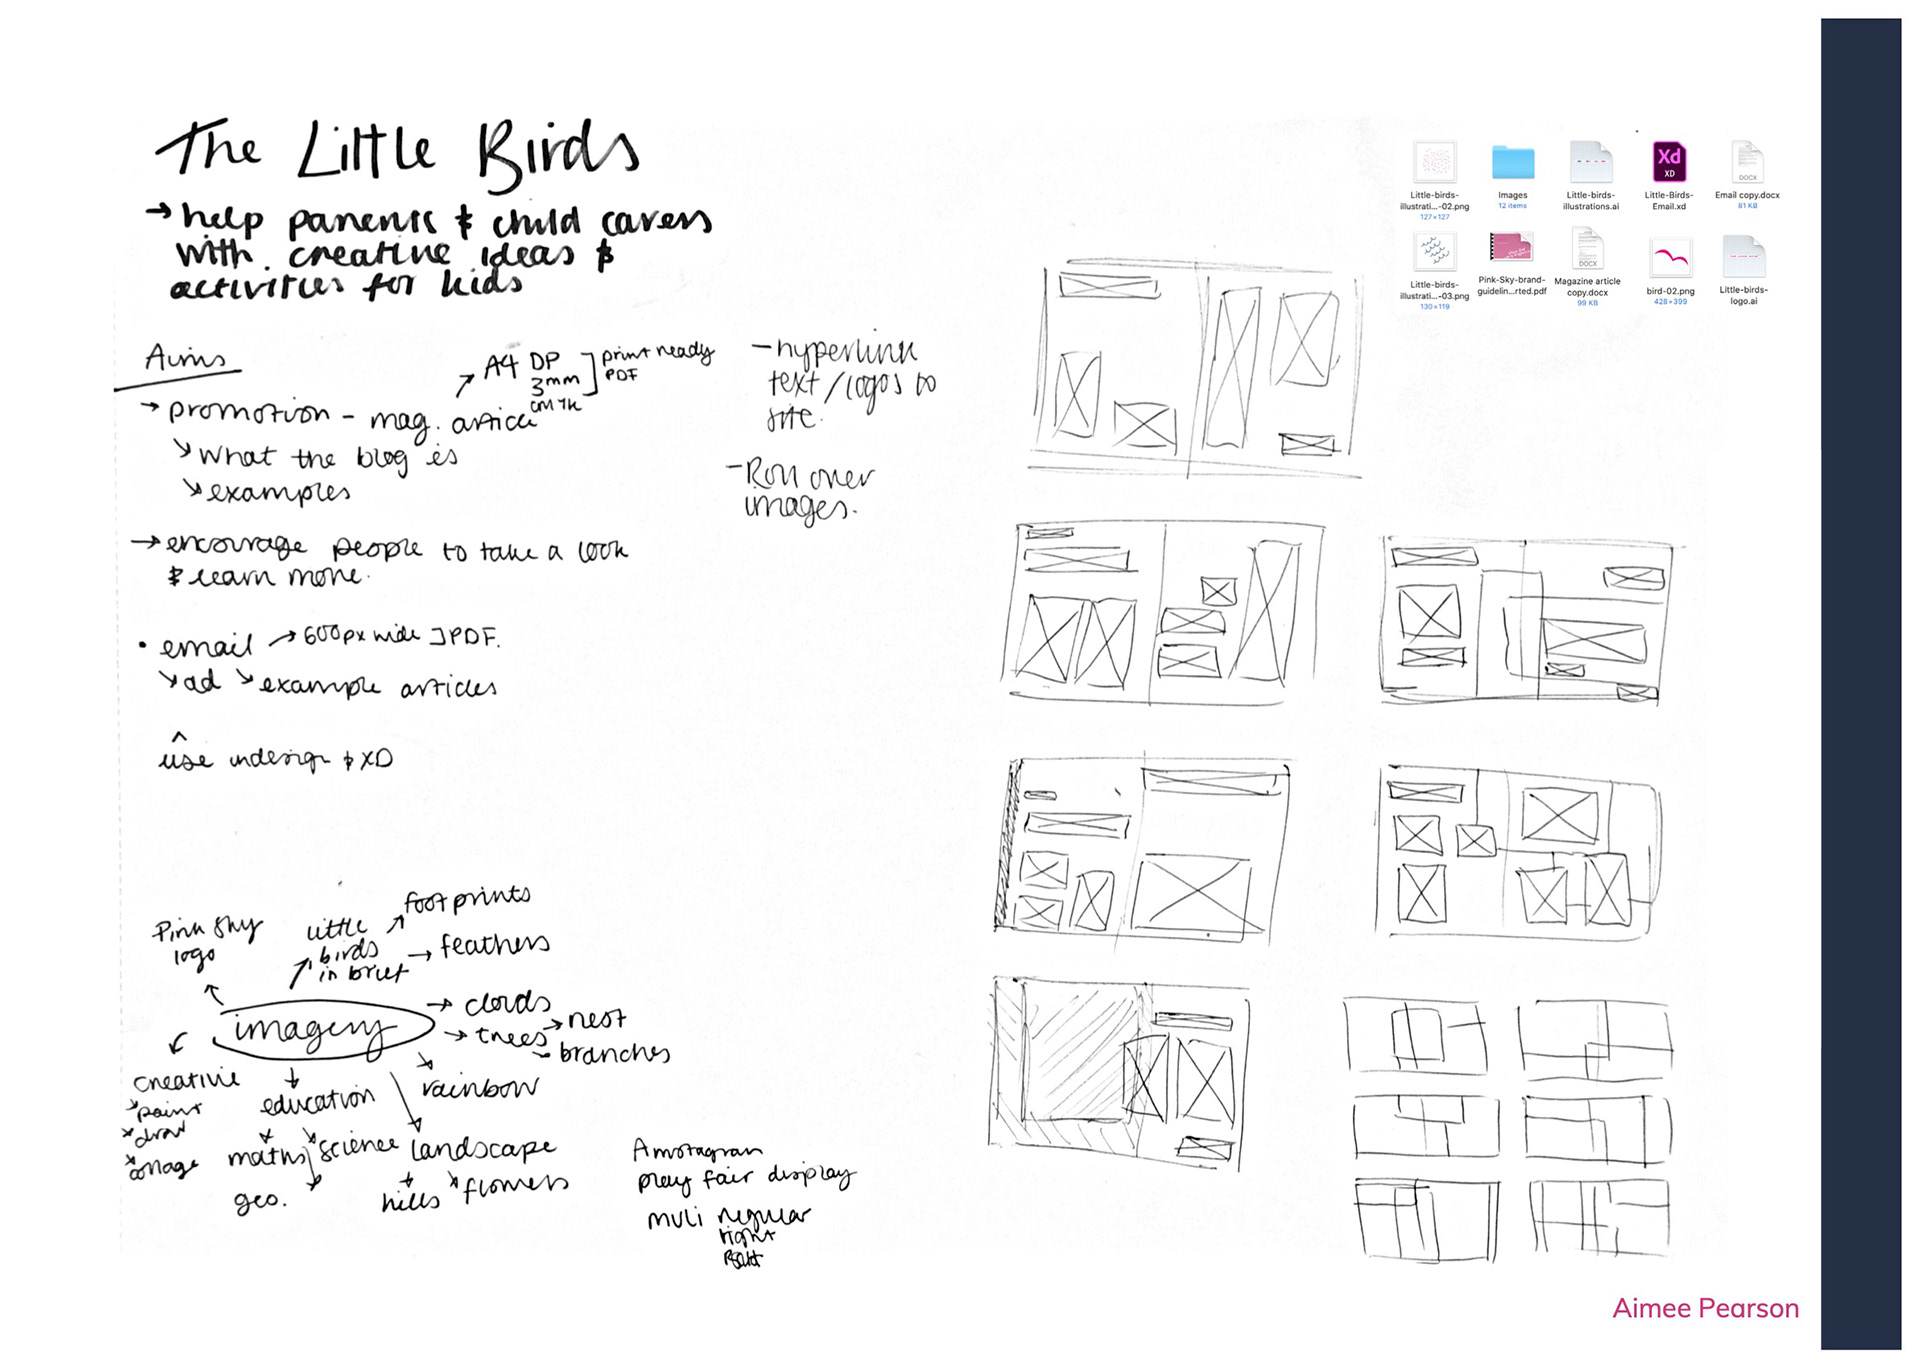 The Little Birds
→ help parents & child carers
with creative ideas &
activities for kids
Aims
→ promotion - mag. article
→ A4 DP
3mm
CMYK
print ready
PDF
↘ what the blog is
↘ examples
→ encourage people to take a look
& learn more.
• email → 600px wide ] PDF.
↘ ad ↘ example articles
^
use indesign & XD
- hyperlink
text / logos to
site.
- Roll over
images.
Pink Sky
logo
little
birds
in brief
→ footprints
→ feathers
imagery
→ clouds
→ trees → nest
→ branches
rainbow
creative
paint
draw
collage
education
maths
science
geo.
landscape
hills
flowers
play fair display
muli regular
light
Bold
Little-birds-
illustrati...-02.png
127×127
Images
12 items
Little-birds-
illustrations.ai
Xd
XD
Little-Birds-
Email.xd
DOCX
Email copy.docx
81 KB
Little-birds-
illustrati...-03.png
130×119
Pink-Sky-brand-
guidelin...rted.pdf
DOCX
Magazine article
copy.docx
99 KB
bird-02.png
428×399
Little-birds-
logo.ai
Aimee Pearson